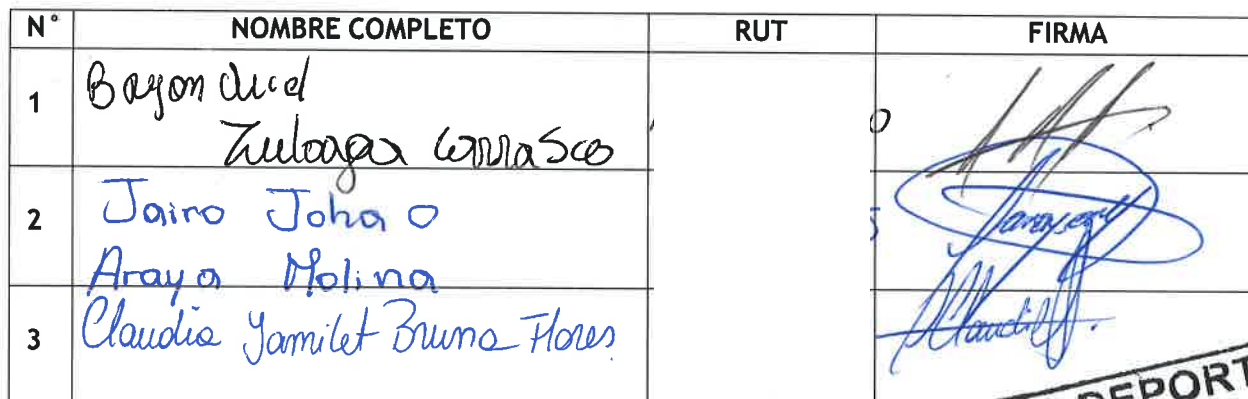 N° NOMBRE COMPLETO RUT FIRMA
1 Bayon
Zuloaga Carrasco
2 Jairo Joha O
Araya Molina
3 Claudia Yamilet Bruna Flores
DEPORT